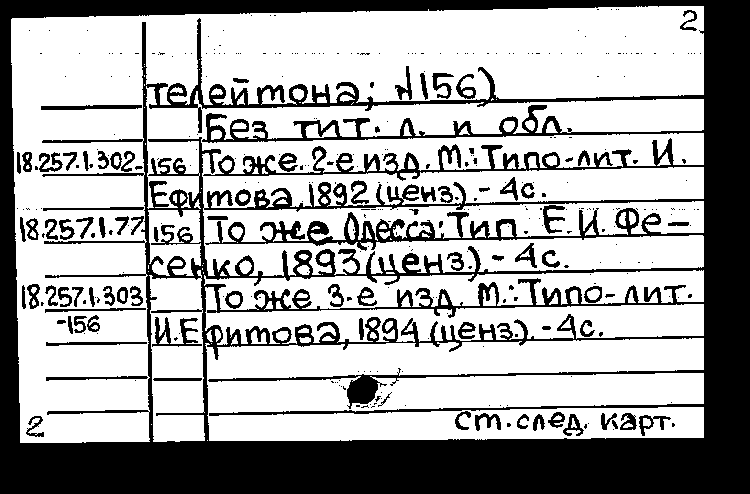 2.
телейтона; №156)
Без тит. л. и обл.
18.257.1.302-156 То же. 2-е изд. М.: Типо-лит. И.
Ефитова, 1892 (ценз.). - 4с.
18.257.1.77-156 То же. Одесса: Тип. Е.И. Фе-
сенко, 1893 (ценз.). - 4с.
18.257.1.303- То же. 3-е изд. М.: Типо-лит.
-156 И. Ефитова, 1894 (ценз.). - 4с.
2 ст. след. карт.